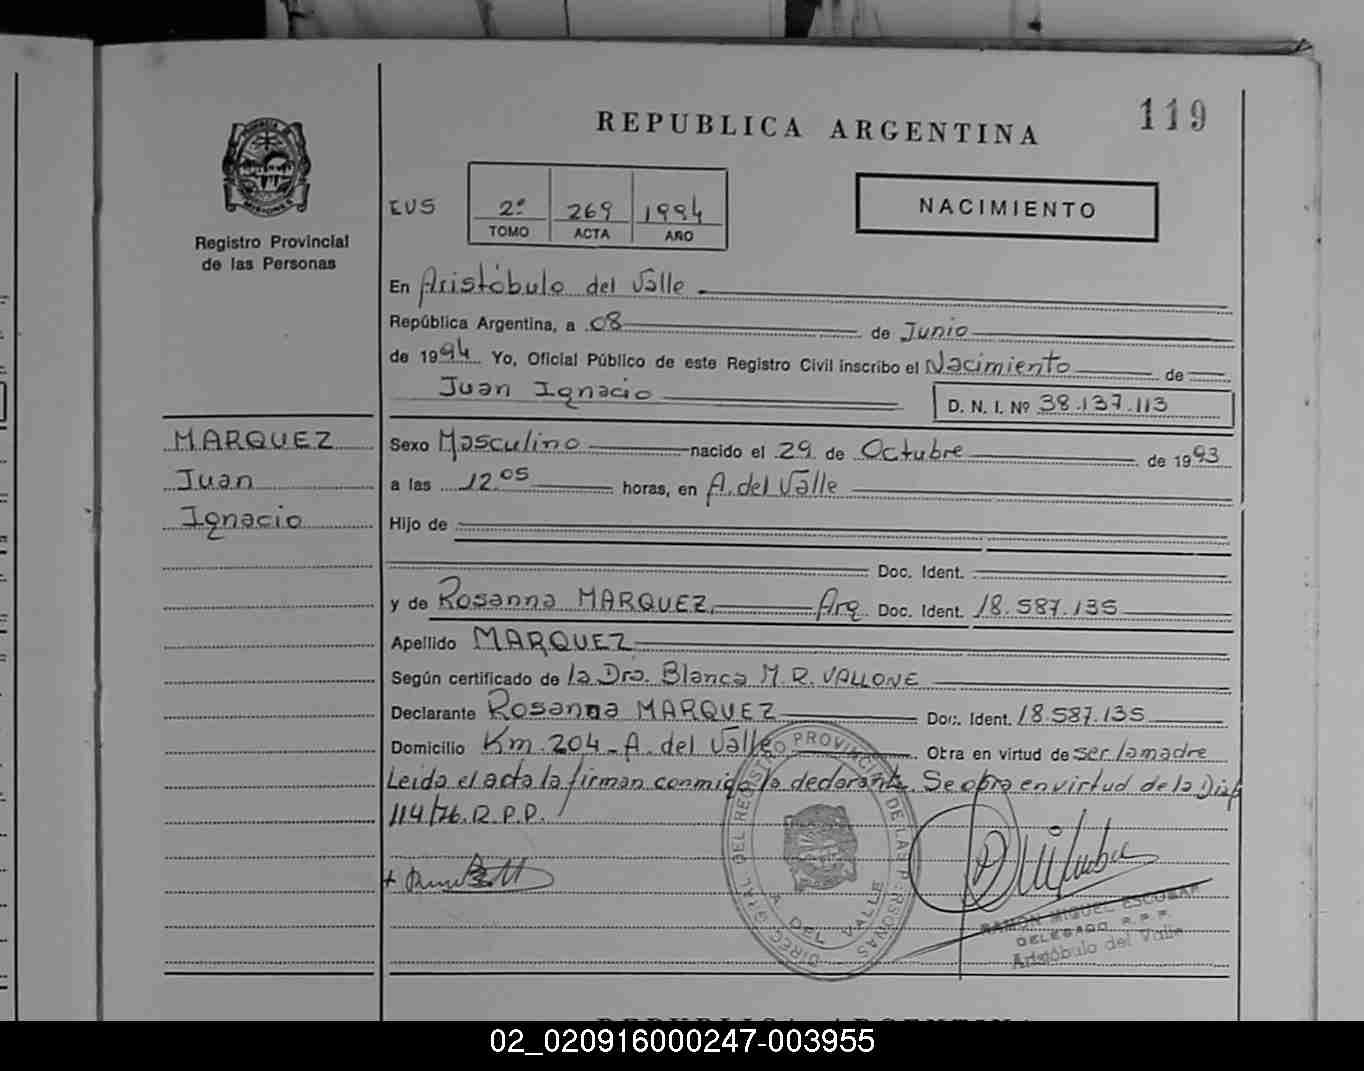 119
REPUBLICA ARGENTINA
PROVINCIA DE
MISIONES
Registro Provincial
de las Personas
NACIMIENTO
EUS 2º 269 1994
TOMO ACTA AÑO
En Aristóbulo del Valle
República Argentina, a 08 de Junio
de 1994 Yo, Oficial Público de este Registro Civil inscribo el Nacimiento de
Juan Ignacio D. N. I. Nº 38.137.113
MARQUEZ
Juan
Ignacio
Sexo Masculino nacido el 29 de Octubre de 1993
a las 12.05 horas, en A. del Valle
Hijo de
Doc. Ident.
y de Rosanna MARQUEZ, Arg. Doc. Ident. 18.587.135
Apellido MARQUEZ
Según certificado de la Dra. Blanca M. R. VALLONE
Declarante Rosanna MARQUEZ Doc. Ident. 18.587.135
Domicilio Km. 204 - A. del Valle Obra en virtud de ser la madre
Leida el acta la firman conmigo la declarante. Se obra en virtud de la Disp
114/76. R.P.P.
DIREC. GRAL DEL REGISTRO PROVINCIAL DE LAS PERSONAS
A. DEL VALLE
RAMON MIGUEL ESCOBAR
DELEGADO R.P.P.
Aristóbulo del Valle
REPUBLICA ARGENTINA
02_020916000247-003955